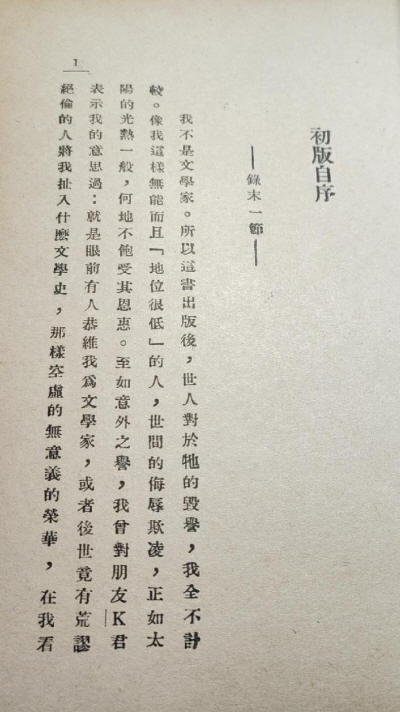 初版自序
——錄末一節——
我不是文學家。所以這書出版後，世人對於牠的毀譽，我全不計
較。像我這樣無能而且「地位很低」的人，世間的侮辱欺凌，正如太
陽的光熱一般，何地不飽受其恩惠。至如意外之譽，我曾對朋友K君
表示我的意思過：就是眼前有人恭維我爲文學家，或者後世竟有荒謬
絕倫的人將我扯入什麽文學史，那樣空虛的無意義的榮華，在我看
1